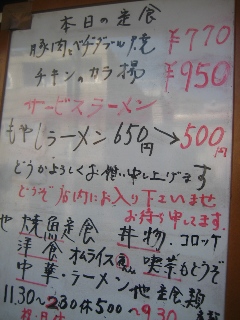 本日の定食
豚肉とベジタブル焼 ¥770
チキンのカラ揚 ¥950
サービスラーメン
もやしラーメン 650円→500円
どうかよろしくお願い申し上げます
どうぞ店内にお入り下さいませ
お待ち申してます。
他 焼魚定食 丼物.コロッケ
洋食 オムライス 喫茶もどうぞ
中華・ラーメン他 定食類
11.30～2.30 休 5.00～9.30